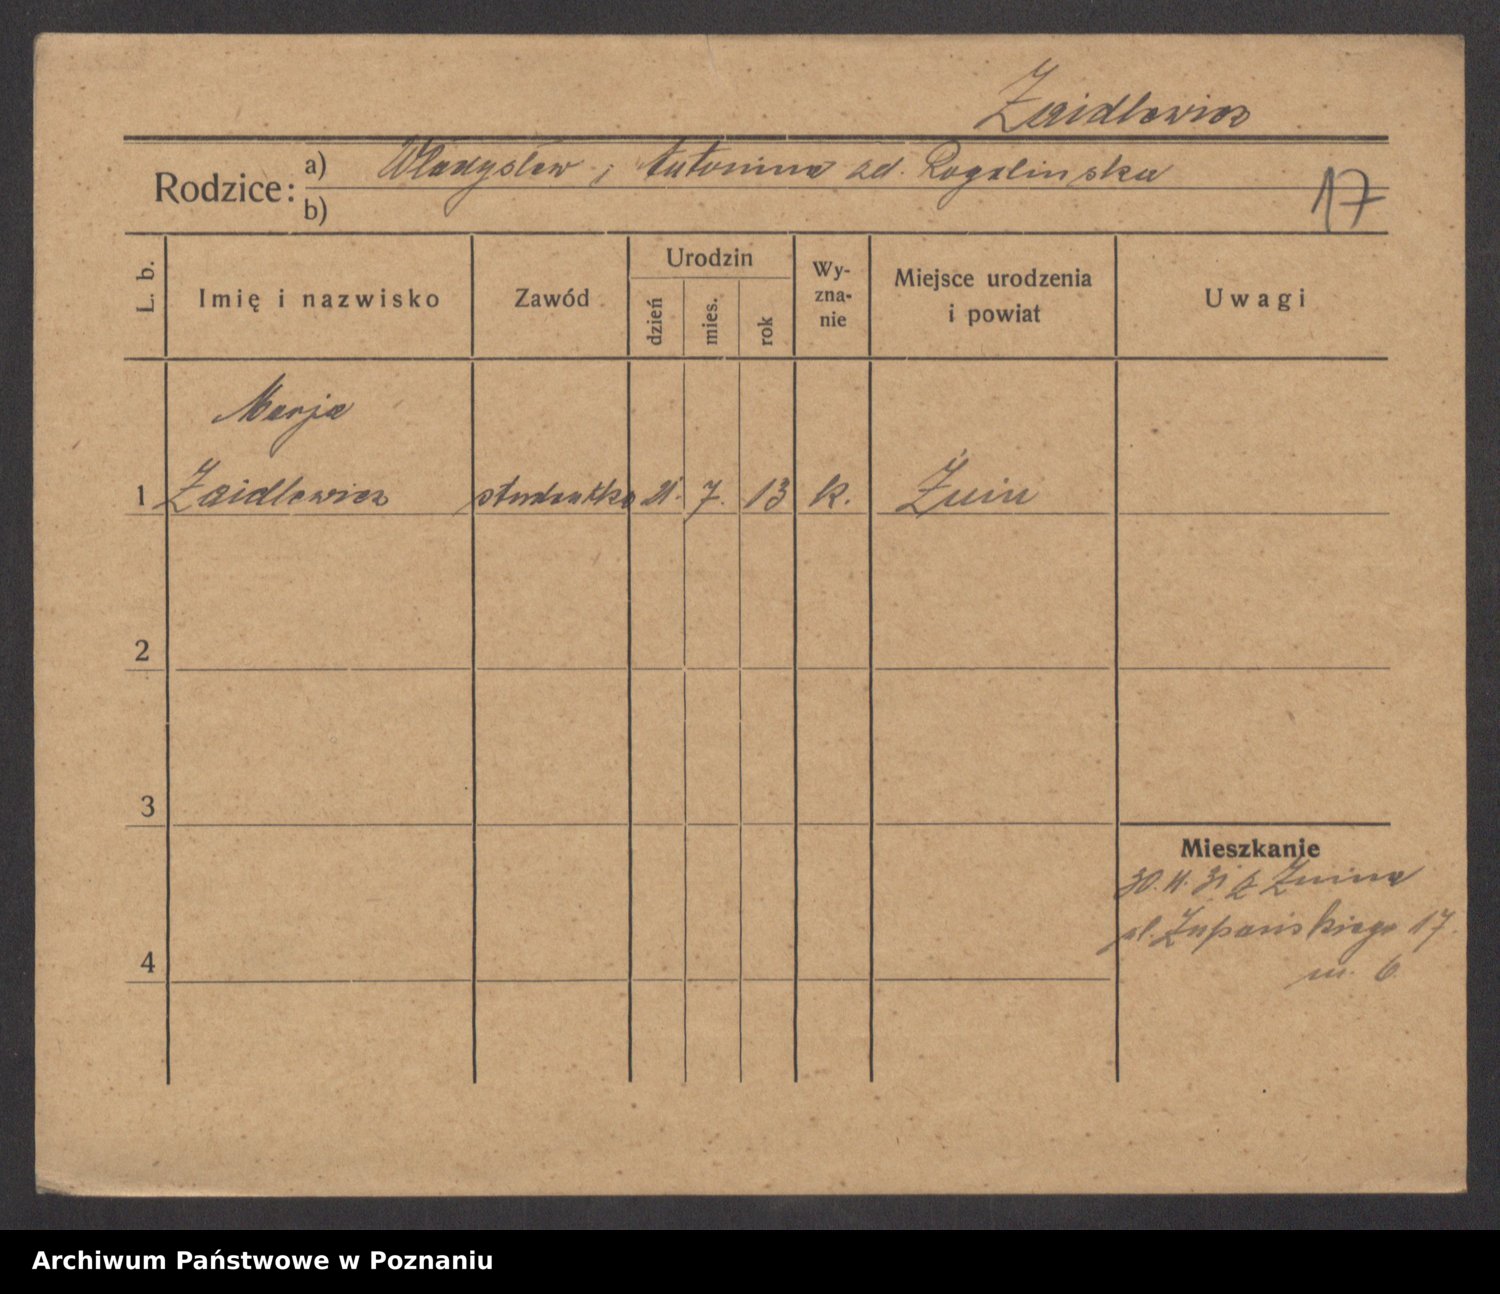 Zaidlewicz
Rodzice: a) Władysław i Antonina zd. Rogalinska
b)
17
L. b.
Imię i nazwisko
Zawód
Urodzin
dzień
mies.
rok
Wy-
zna-
nie
Miejsce urodzenia
i powiat
Uwagi
Marja
1 Zaidlewicz studentka 21. 7. 13 k. Żnin
2
3
4
Mieszkanie
30. 11. 31 z Żnina
pl. Żupańskiego 17.
m. 6
Archiwum Państwowe w Poznaniu